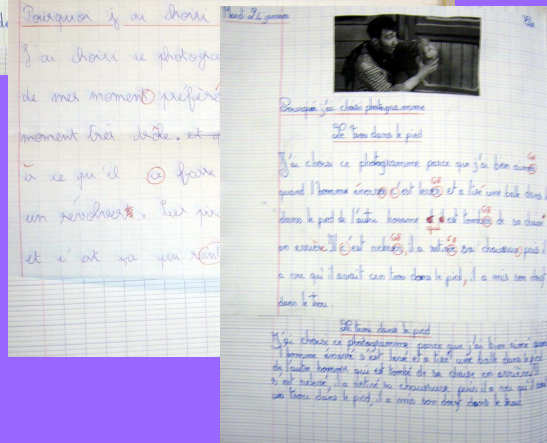 Pourquoi j'ai choisi
J'ai choisi ce photogra
de mes moment préféré
moment très drôle. et
à ce qu'il a faire
un révolver.
et c'est ça qui
Mardi 24 janvier
Pourquoi j'ai choisi photogramme
Le trou dans le pied
J'ai choisi ce photogramme parce que j'ai bien aimé
quand l'homme énervé c'est levé et a tiré une balle dans
dans le pied de l'autre homme qui est tombé de sa chaise
en arrière. Il c'est relevé, il a retiré sa chaussure puis il
a cru qu'il avait un trou dans le pied, il a mis son doigt
dans le trou.
Le trou dans le pied
J'ai choisi ce photogramme parce que j'ai bien aimé quand
l'homme énervé s'est levé et a tiré une balle dans le pied
de l'autre homme qui est tombé de sa chaise en arrière. Il
s'est relevé, il a retiré sa chaussure puis il a cru qu'il
un trou dans le pied, il a mis son doigt dans le trou.